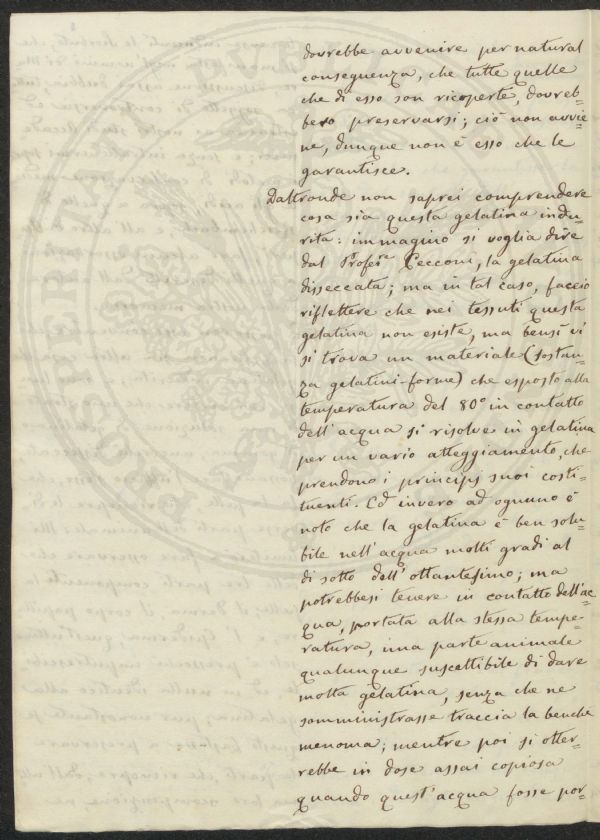 dovrebbe avvenire per natural
conseguenza, che tutte quelle
che di esso son ricoperte, dovreb=
bero preservarsi; ciò non avvie=
ne, dunque non è esso che le
garantisce.
Daltronde non saprei comprendere
cosa sia questa gelatina indu=
rita: immagino si voglia dire
dal Profes.re Cecconi, la gelatina
disseccata; ma in tal caso, faccio
riflettere che nei tessuti questa
gelatina non esiste, ma bensì vi
si trova un materiale (sostan=
za gelatini-forme) che esposto alla
temperatura del 80° in contatto
dell'acqua si risolve in gelatina
per un vario atteggiamento, che
prendono i principj suoi costi=
tuenti. Ed invero ad ognuno è
noto che la gelatina è ben solu=
bile nell'acqua molti gradi al
di sotto dell'ottantesimo; ma
potrebbesi tenere in contatto dell'ac
qua, portata alla stessa tempe=
ratura, una parte animale
qualunque suscettibile di dare
molta gelatina, senza che ne
somministrasse traccia la benche
menoma; mentre poi si otter=
rebbe in dose assai copiosa
quando quest'acqua fosse por=